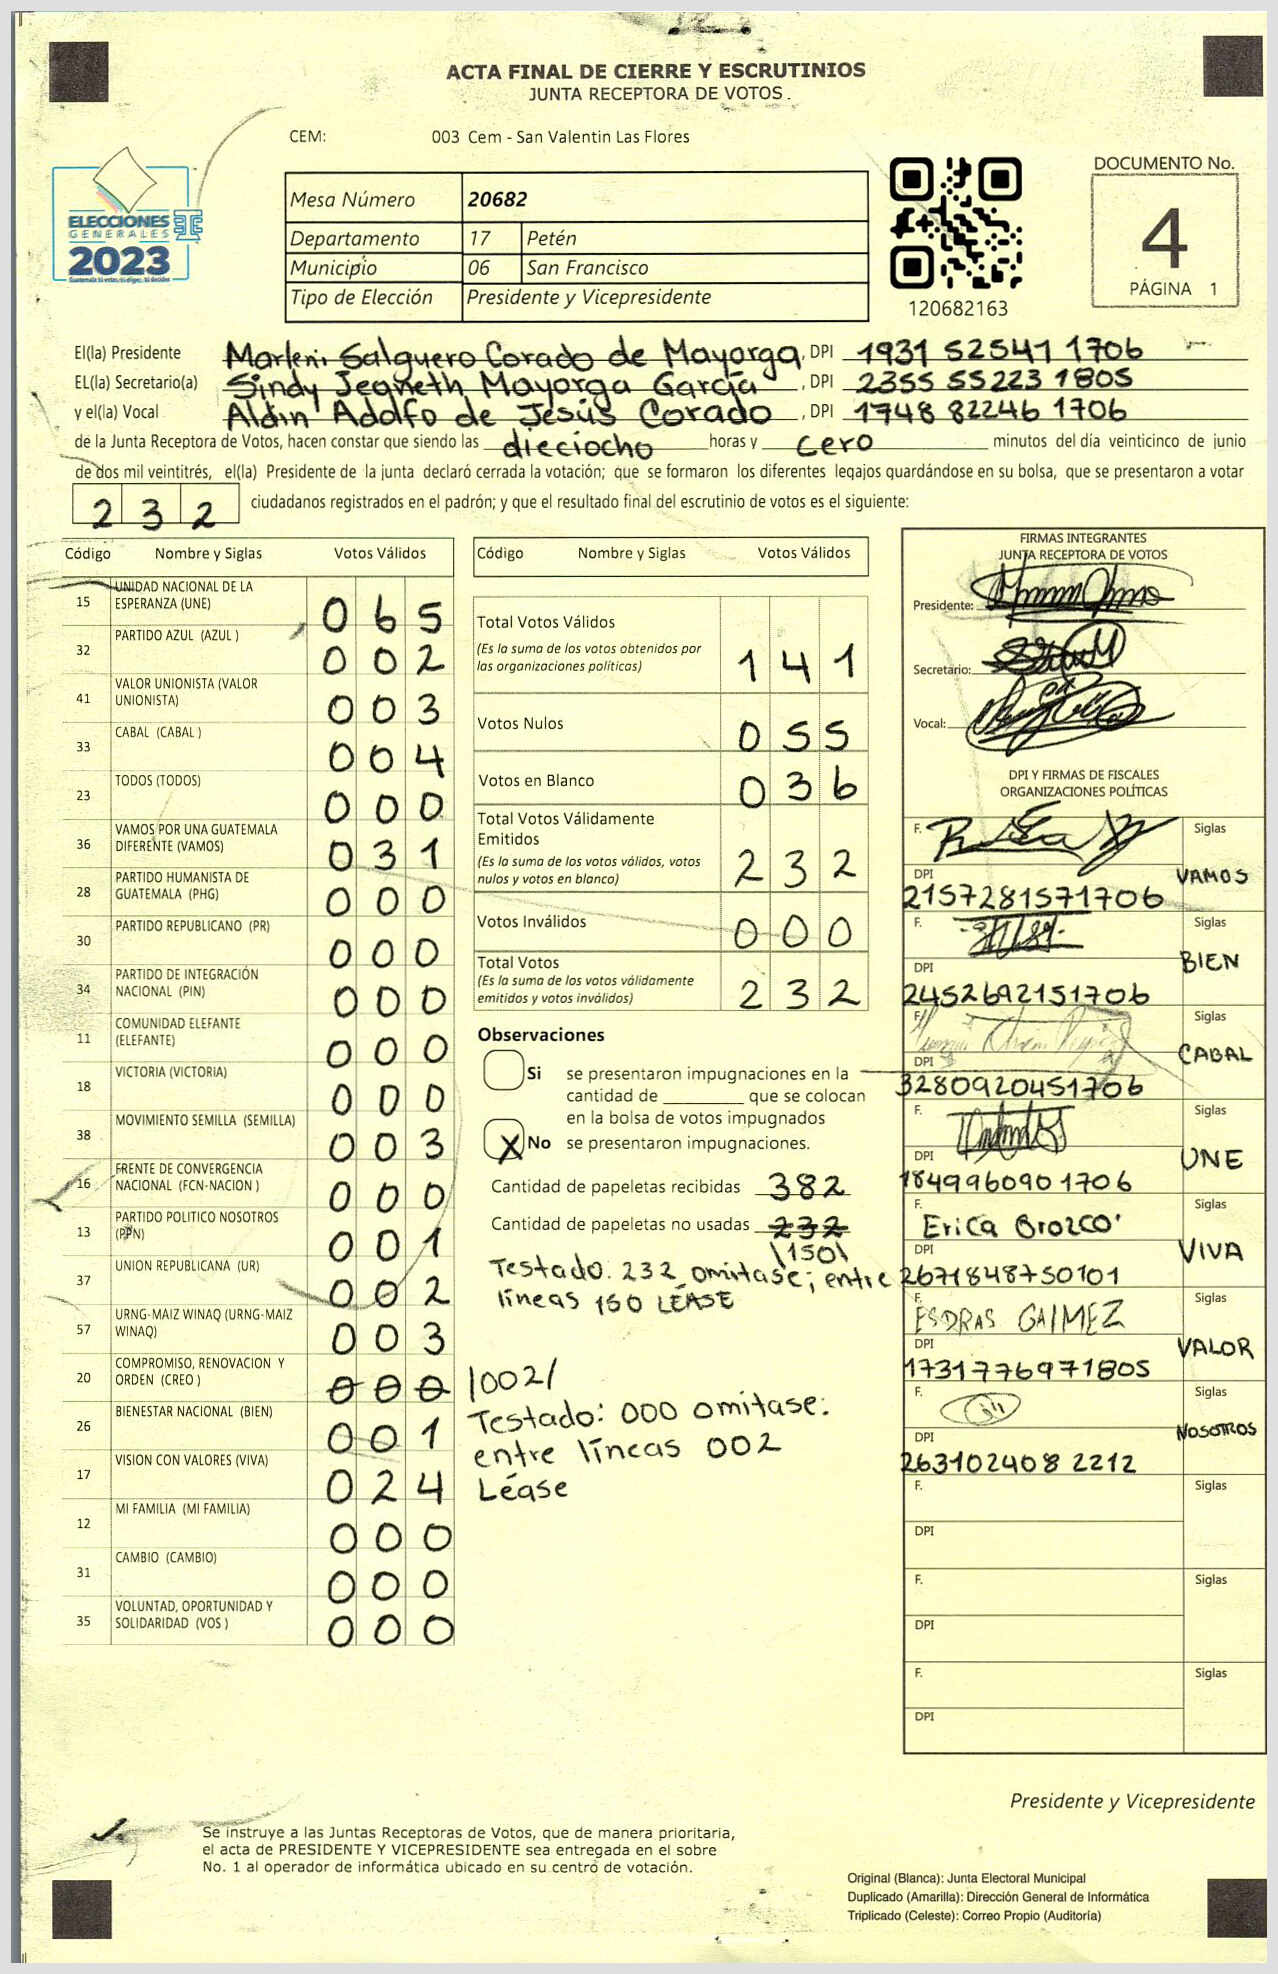 ACTA FINAL DE CIERRE Y ESCRUTINIOS
JUNTA RECEPTORA DE VOTOS
CEM: 003 Cem - San Valentin Las Flores
ELECCIONES
GENERALES
2023
Mesa Número 20682
Departamento 17 Petén
Municipio 06 San Francisco
Tipo de Elección Presidente y Vicepresidente
120682163
DOCUMENTO No.
4
PÁGINA 1
El(la) Presidente Marleni Salguero Corado de Mayorga, DPI 1931 52541 1706
EL(la) Secretario(a) Sindy Jeaneth Mayorga García, DPI 2355 55223 1805
y el(la) Vocal Aldin Adolfo de Jesús Corado, DPI 1748 82246 1706
de la Junta Receptora de Votos, hacen constar que siendo las dieciocho horas y cero minutos del día veinticinco de junio
de dos mil veintitrés, el(la) Presidente de la junta declaró cerrada la votación; que se formaron los diferentes legajos quardándose en su bolsa, que se presentaron a votar
232 ciudadanos registrados en el padrón; y que el resultado final del escrutinio de votos es el siguiente:
Código Nombre y Siglas Votos Válidos
15 UNIDAD NACIONAL DE LA
ESPERANZA (UNE) 065
32 PARTIDO AZUL (AZUL ) 002
41 VALOR UNIONISTA (VALOR
UNIONISTA) 003
33 CABAL (CABAL ) 004
23 TODOS (TODOS) 000
36 VAMOS POR UNA GUATEMALA
DIFERENTE (VAMOS) 031
28 PARTIDO HUMANISTA DE
GUATEMALA (PHG) 000
30 PARTIDO REPUBLICANO (PR) 000
34 PARTIDO DE INTEGRACIÓN
NACIONAL (PIN) 000
11 COMUNIDAD ELEFANTE
(ELEFANTE) 000
18 VICTORIA (VICTORIA) 000
38 MOVIMIENTO SEMILLA (SEMILLA) 003
16 FRENTE DE CONVERGENCIA
NACIONAL (FCN-NACION ) 000
13 PARTIDO POLITICO NOSOTROS
(PPN) 001
37 UNION REPUBLICANA (UR) 002
57 URNG-MAIZ WINAQ (URNG-MAIZ
WINAQ) 003
20 COMPROMISO, RENOVACION Y
ORDEN (CREO ) 000
26 BIENESTAR NACIONAL (BIEN) 001
17 VISION CON VALORES (VIVA) 024
12 MI FAMILIA (MI FAMILIA) 000
31 CAMBIO (CAMBIO) 000
35 VOLUNTAD, OPORTUNIDAD Y
SOLIDARIDAD (VOS ) 000
Código Nombre y Siglas Votos Válidos
Total Votos Válidos
(Es la suma de los votos obtenidos por
las organizaciones políticas) 141
Votos Nulos 055
Votos en Blanco 036
Total Votos Válidamente
Emitidos
(Es la suma de los votos válidos, votos
nulos y votos en blanco) 232
Votos Inválidos 000
Total Votos
(Es la suma de los votos válidamente
emitidos y votos inválidos) 232
Observaciones
Si se presentaron impugnaciones en la
cantidad de ________ que se colocan
en la bolsa de votos impugnados
X No se presentaron impugnaciones.
Cantidad de papeletas recibidas 382
Cantidad de papeletas no usadas 232
\150\
Testado. 232 omitase; entre
líneas 150 LÉASE
/002/
Testado: 000 omitase:
entre líneas 002
Léase
FIRMAS INTEGRANTES
JUNTA RECEPTORA DE VOTOS
Presidente:
Secretario:
Vocal:
DPI Y FIRMAS DE FISCALES
ORGANIZACIONES POLÍTICAS
F. Siglas
DPI VAMOS
2157281571706
F. Siglas
DPI BIEN
2452692151706
F. Siglas
DPI CABAL
3280920451706
F. Siglas
DPI UNE
1849960901706
F. Erica Orozco Siglas
DPI VIVA
2671848750101
F. ESDRAS GAIMEZ Siglas
DPI VALOR
1731776971805
F. Siglas
DPI NOSOTROS
263102408 2212
F. Siglas
DPI
F. Siglas
DPI
F. Siglas
DPI
Presidente y Vicepresidente
Se instruye a las Juntas Receptoras de Votos, que de manera prioritaria,
el acta de PRESIDENTE Y VICEPRESIDENTE sea entregada en el sobre
No. 1 al operador de informática ubicado en su centro de votación.
Original (Blanca): Junta Electoral Municipal
Duplicado (Amarilla): Dirección General de Informática
Triplicado (Celeste): Correo Propio (Auditoría)